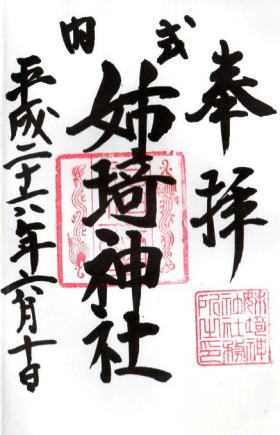 奉拝
式内
姉埼神社
平成二十六年六月十日
姉埼神
社社務
所之印